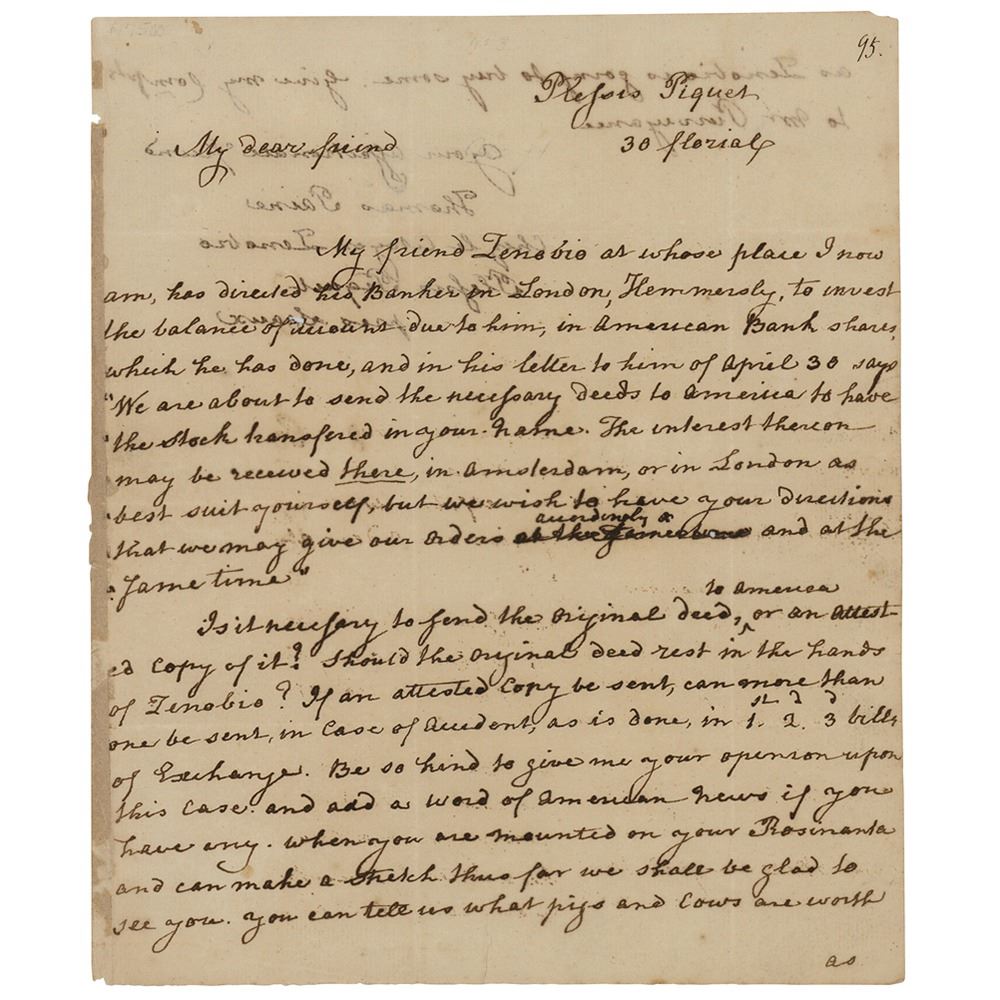 95.
Plessis Piquet
30 florial
My dear friend
My friend Zenobio at whose place I now
am, has directed his Banker in London, Hemmersly, to invest
the balance of account due to him, in American Bank shares,
which he has done, and in his letter to him of April 30 says
"We are about to send the necessary deeds to america to have
"the stock transfered in your name. The interest thereon
may be received there, in amsterdam, or in London as
"best suit yourself, but we wish to have your directions
accordingly
"that we may give our orders at the same time and at the
"same time"
to america
Is it necessary to send the original deed, or an attest-
ed copy of it? Should the original deed rest in the hands
of Zenobio? If an attested Copy be sent, can more than
one be sent, in Case of accident, as is done, in 1.st 2.d 3d bills
of Exchange. Be so kind to give me your openion upon
this case and add a word of american news if you
have any. when you are mounted on your Rosinanta
and can make a stretch thus far we shall be glad to
see you. you can tell us what pigs and Cows are worth
as
as Zenobio is going to buy some. Give my Compts
to Mr
your
friend
Thomas Paine
Zenobio